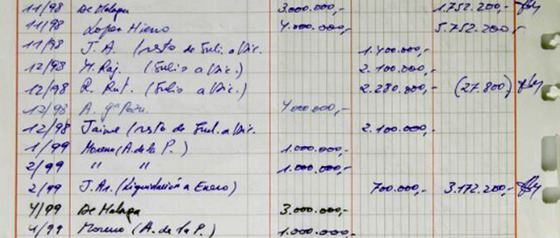 11/98 De Malaga 3.000.000,- 1.752.200,-
11/98 Lopez Hierro 4.000.000,- 5.752.200,-
11/98 J.A. (resto de Julio a Dic.) 1.400.000,-
12/98 M. Raj. (Julio a Dic.) 2.100.000,-
12/98 R. Rat. (Julio a Dic.) 2.280.000,- (27.800)
12/98 A. Gª 4.000.000,-
12/98 Jaime (resto de Jul. a Dic. 2.100.000,-
1/99 Moreno (A. de la P.) 1.000.000,-
2/99 " " 1.000.000,-
2/99 J.A. (Liquidación a Enero) 700.000,- 3.172.200,-
4/99 De Malaga 3.000.000,-
4/99 Moreno (A. de la P.) 1.000.000,-